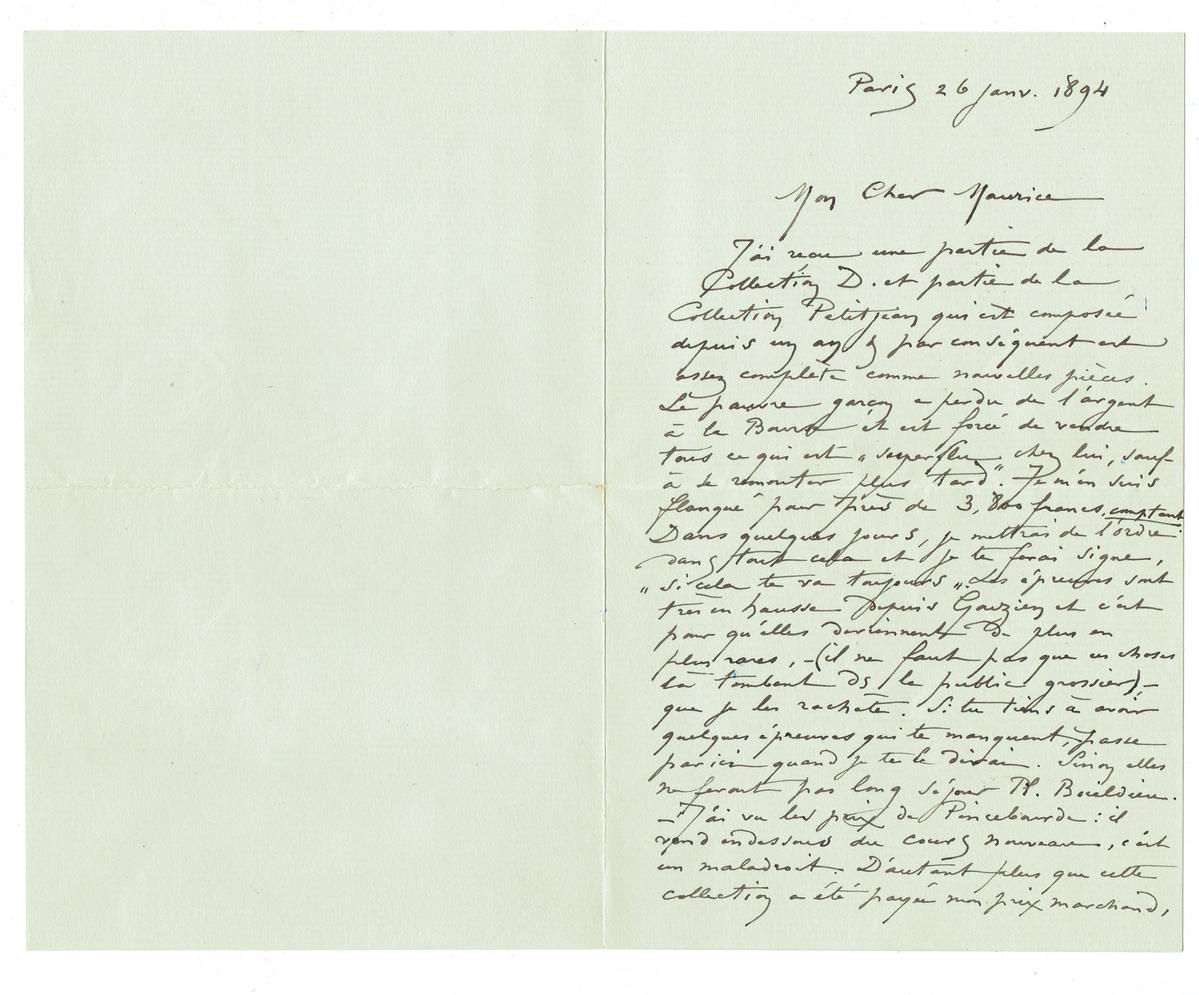 Paris 26 janv. 1894
Mon Cher Maurice
J'ai reçu une partie de la
Collection D. et partie de la
Collection Petitjean qui est composée
depuis un an & par conséquent est
assez complète comme nouvelles pièces.
Le pauvre garçon a perdu de l'argent
à la Bourse et est forcé de vendre
tous ce qui est „superflu" chez lui, sauf
à se remonter plus tard". Je m'en suis
flanqué pour près de 3,800 francs, comptant.
Dans quelques jours, je mettrai de l'ordre
dans tout cela et je te ferai signe,
„si cela te va toujours". Les épreuves sont
très en hausse depuis Gauzien et c'est
pour qu'elles deviennent de plus en
plus rares, – (il ne faut pas que ces choses
là tombent ds le public grossier) –
que je les rachète. Si tu tiens à avoir
quelques épreuves qui te manquent, passe
par ici quand je te le dirai. Sinon elles
ne feront pas long séjour Pl. Boïeldieu.
– J'ai vu les prix de Pincebourde : il
vend endessous du cours nouveau, c'est
un maladroit. D'autant plus que cette
collection a été payée mon prix marchand,